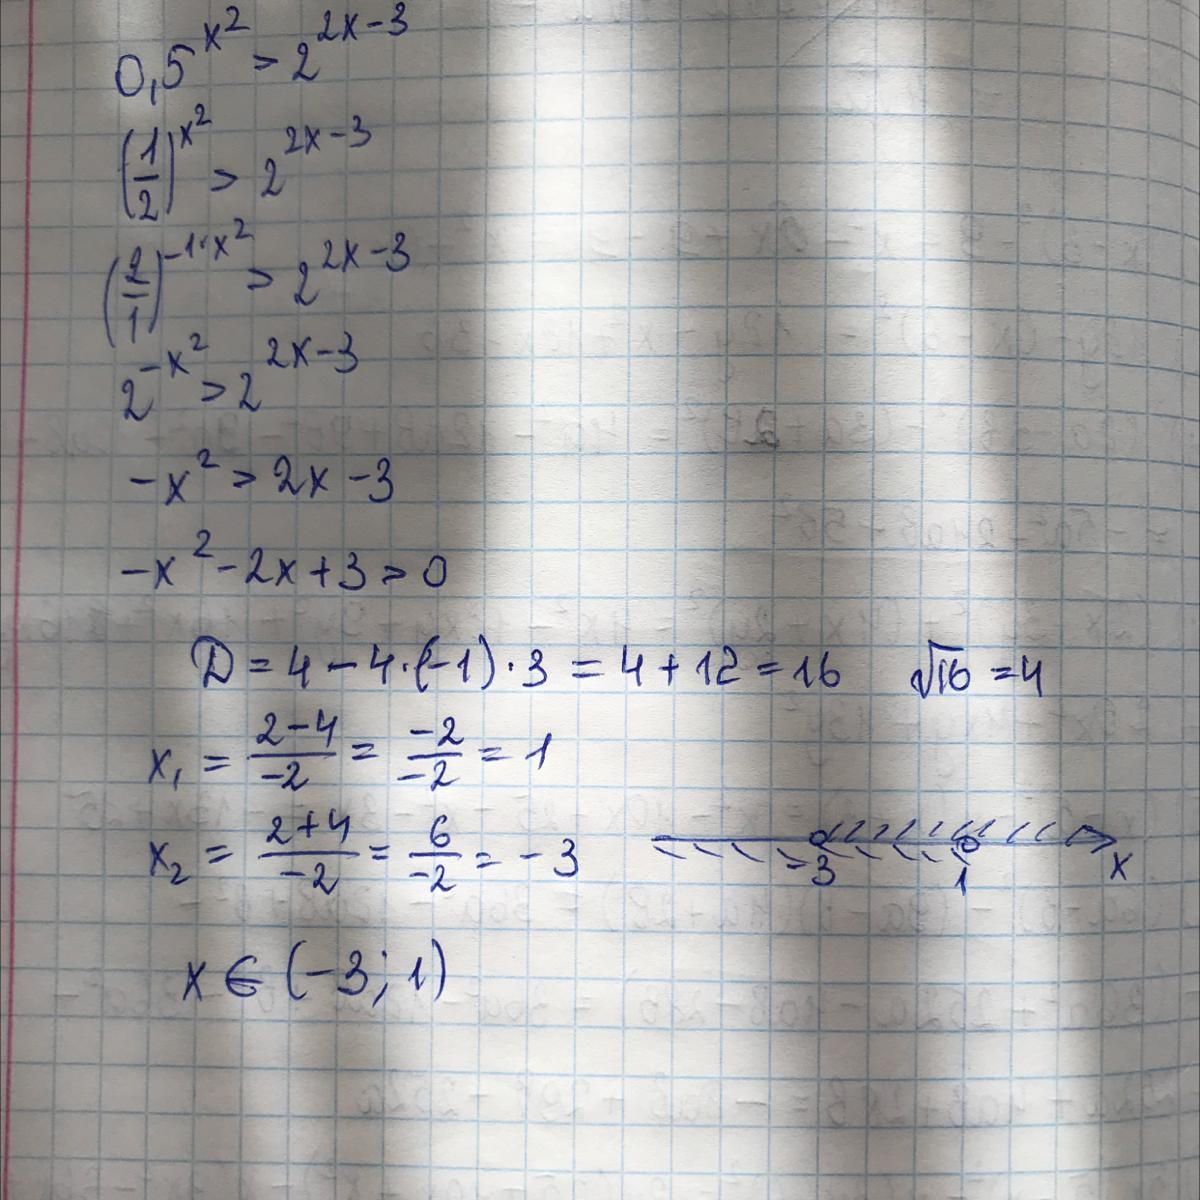 0,5^{x^2} > 2^{2x-3}
(1/2)^{x^2} > 2^{2x-3}
(2/1)^{-1·x^2} > 2^{2x-3}
2^{-x^2} > 2^{2x-3}
-x^2 > 2x-3
-x^2-2x+3 > 0
D = 4-4·(-1)·3 = 4+12 = 16 √16 = 4
x₁ = (2-4)/(-2) = (-2)/(-2) = 1
x₂ = (2+4)/(-2) = 6/(-2) = -3
-3 1 x
x ∈ (-3; 1)